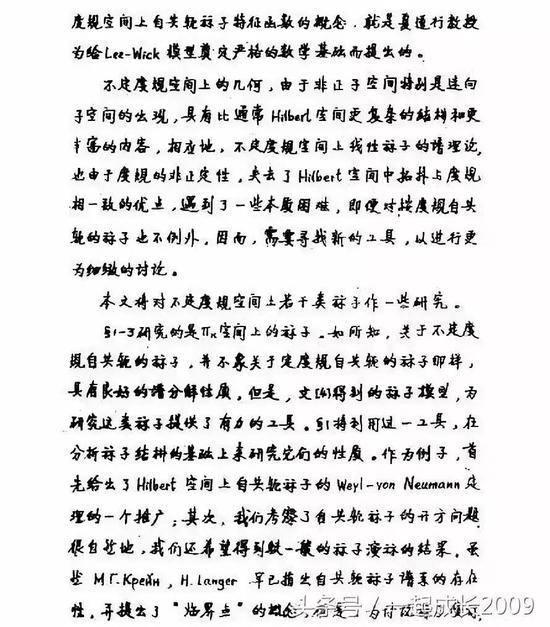 度规空间上自共轭祘子特征函数的概念,就是夏道行教授
为给Lee-Wick 模型奠定严格的数学基础而提出的。
不定度规空间上的几何,由于非正子空间特别是迷向
子空间的出现,具有比通常Hilbert空间更复杂的结构和更
丰富的内容,相应地,不定度规空间上线性祘子的谱理论,
也由于度规的非正定性,失去了Hilbert空间中拓扑与度规
相一致的优点,遇到了一些本质困难,即使对按度规自共
轭的祘子也不例外,因而,需要寻找新的工具,以进行更
为细致的讨论。
本文将对不定度规空间上若干类祘子作一些研究。
§1-3研究的是πκ空间上的祘子。如所知,关于不定度
规自共轭的祘子,并不象关于定度规自共轭的祘子那样,
具有良好的谱分解性质。但是,文[6]得到的祘子模型,为
研究这类祘子提供了有力的工具。§1将利用这一工具,在
分析祘子结构的基础上来研究它们的性质。作为例子,首
先给出了Hilbert 空间上自共轭祘子的Weyl-von Neumann定
理的一个推广;其次,我们考察了自共轭祘子的开方问题
很自然地,我们还希望得到较一般的祘子演祘的结果。虽
然 М.Г.Крейн, H.Langer 早已指出自共轭祘子谱系的存在
性,并提出了“临界点”的概念,
头条号/一起成长2009